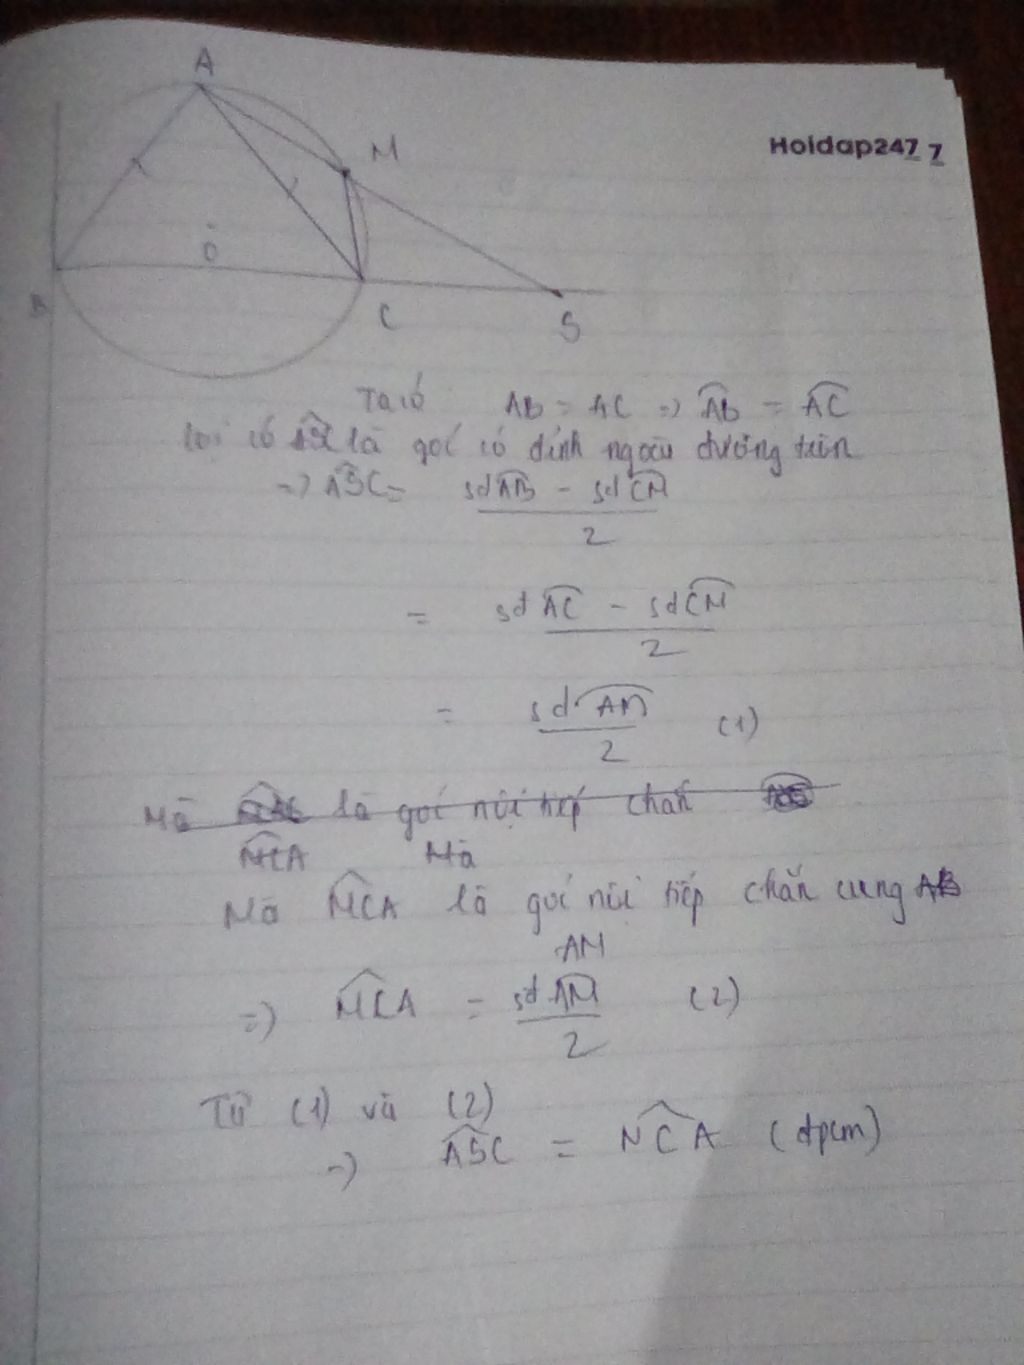 A
M
Hoidap247 7
O
B
C
S
Ta có AB = AC => AB = AC
lại có ASC là góc có đỉnh ngoài đường tròn
=> ASC = sđAB - sđCM
2
= sđ AC - sđ CM
2
= sđ AM (1)
2
Mà là góc nội tiếp chắn
MCA Mà
Mà MCA là góc nội tiếp chắn cung AB
AM
=> MCA = sđ AM (2)
2
Từ (1) và (2)
=> ASC = MCA (đpcm)